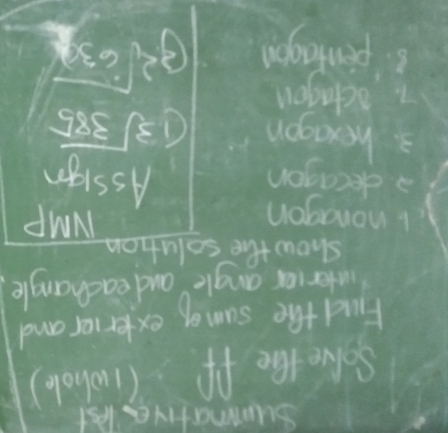 Summative Test
Solve the ff (1 whole)
Find the sum of exterior and
interior angle and each angle
show the solution
1. nonagon
2. decagon
3. hexagon
7. octagon
8. pentagon
NMP
Assign
(13√385